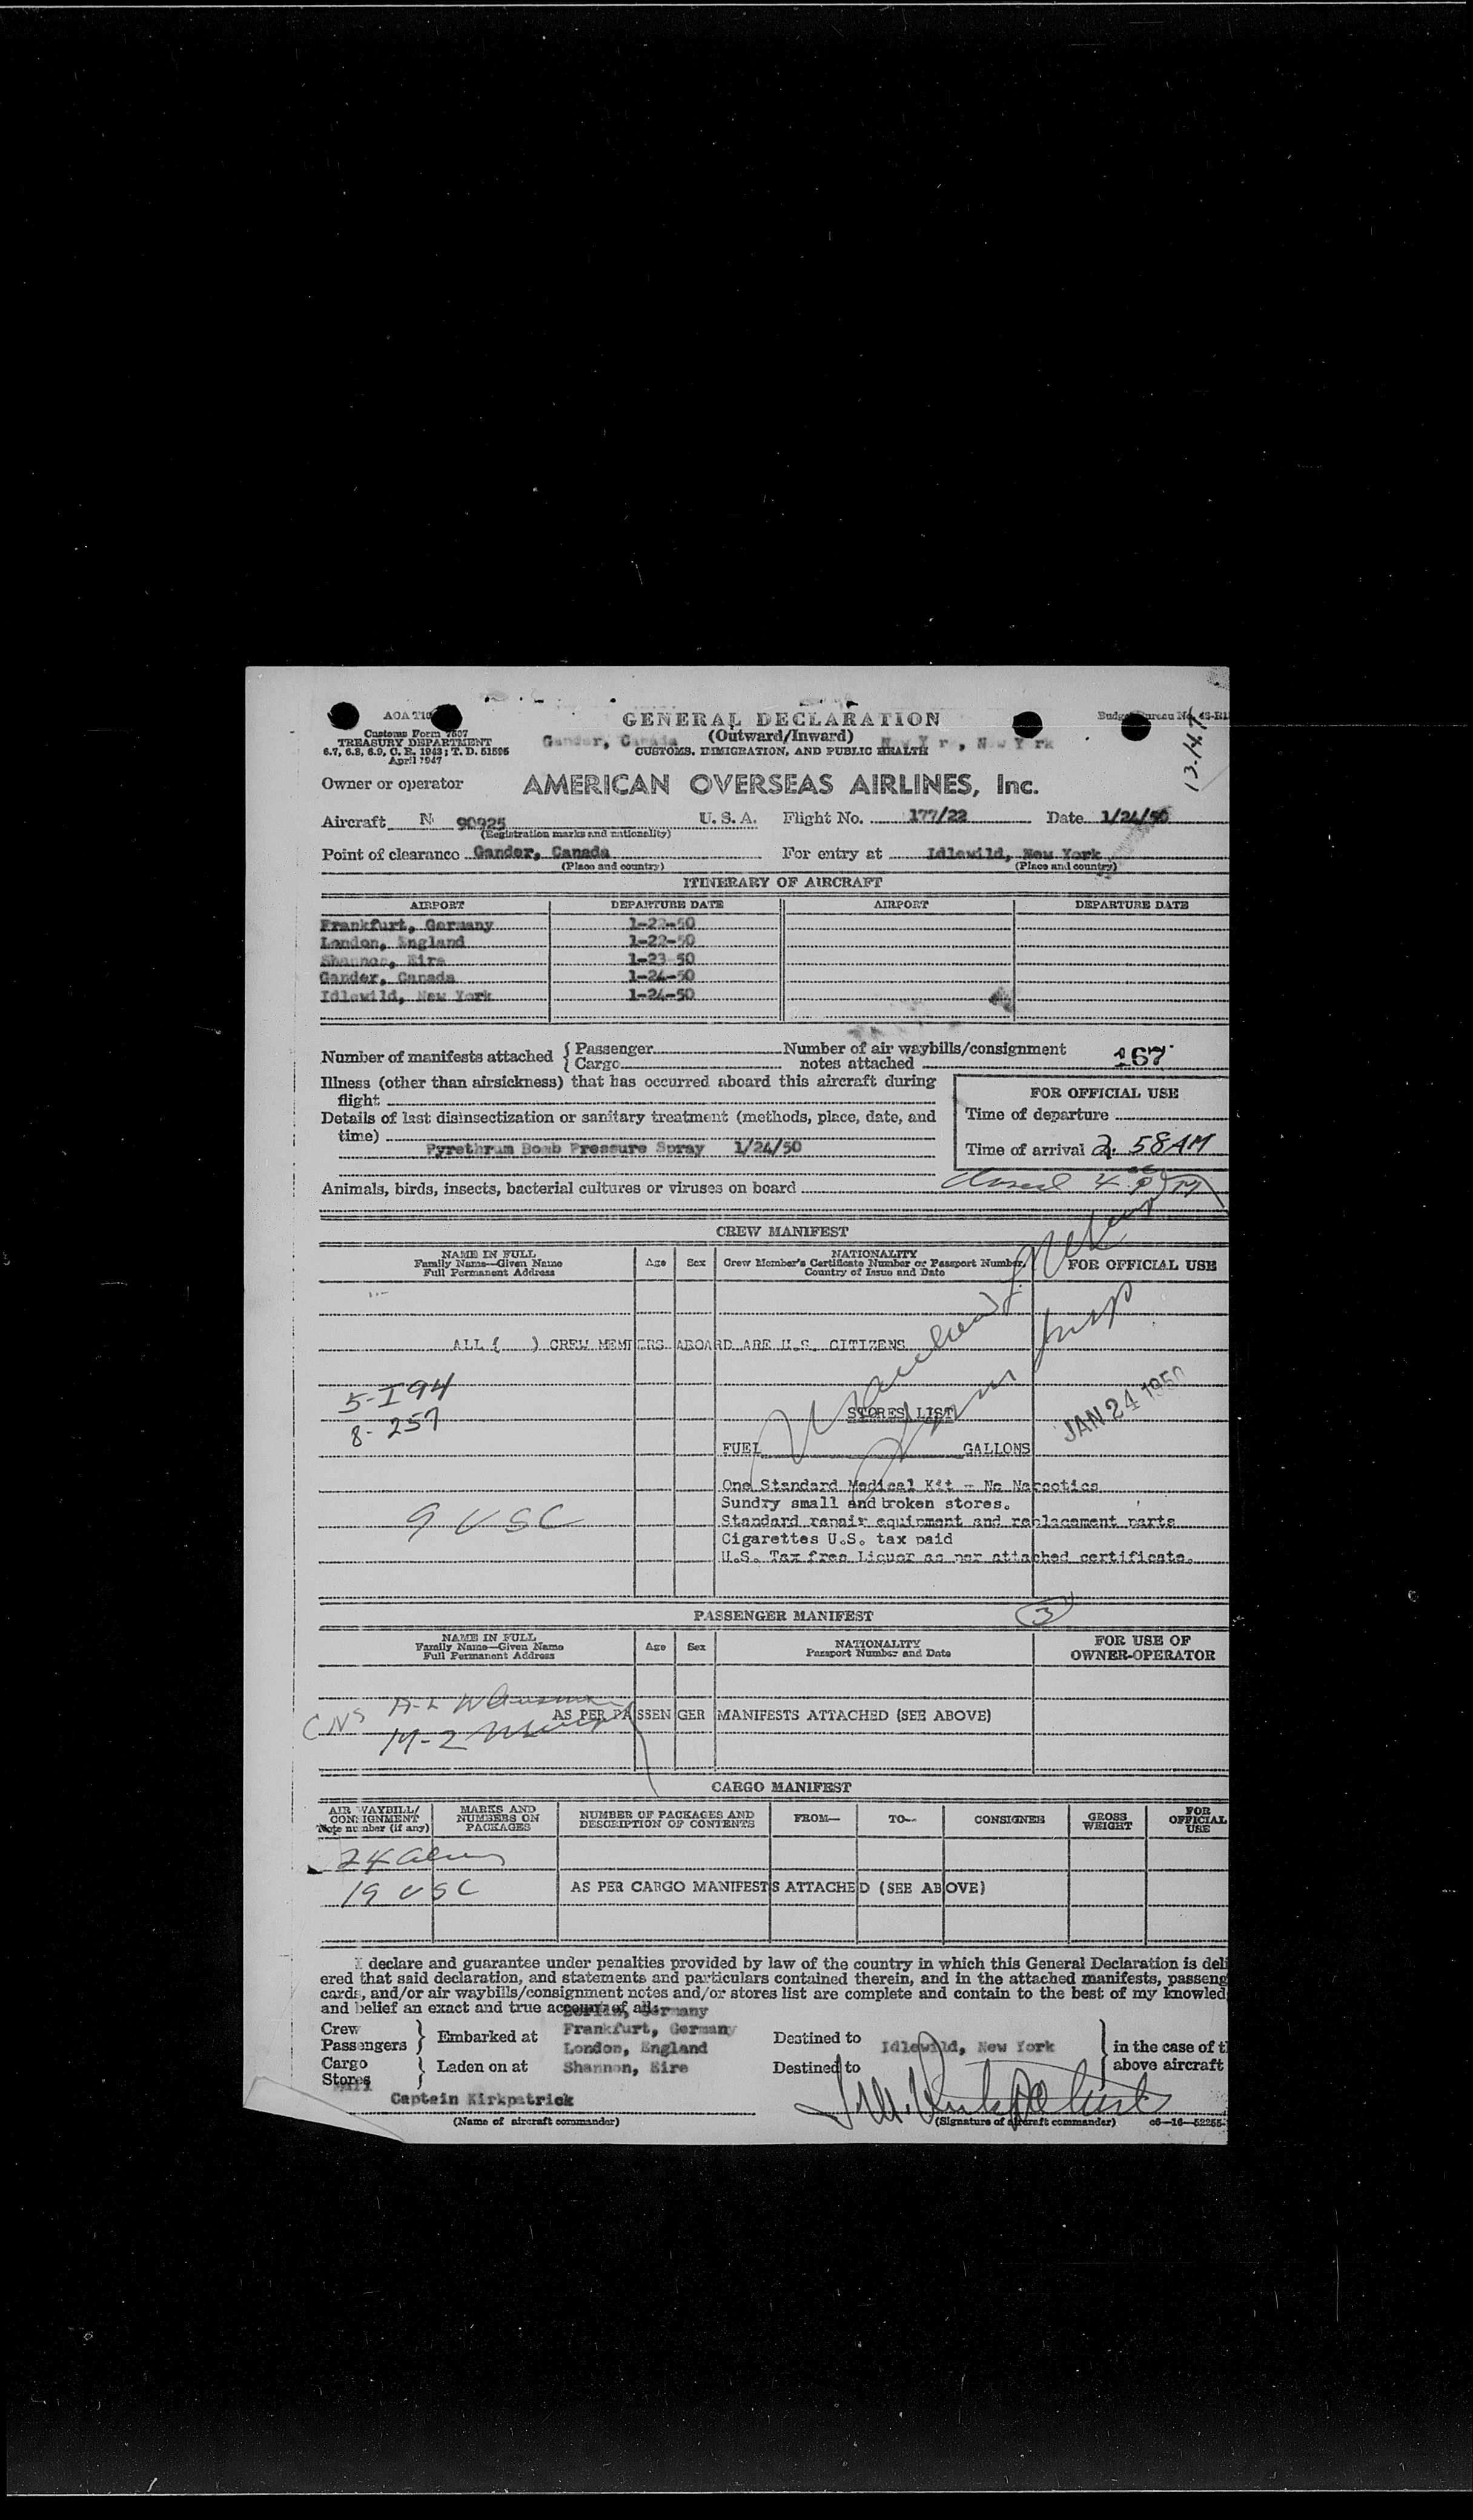 GENERAL DECLARATION
(Outward/Inward)
CUSTOMS, IMMIGRATION, AND PUBLIC HEALTH
Customs Form 7507
TREASURY DEPARTMENT
6.7, 6.8, 6.9, C. R. 1943; T. D. 51595
April 1947
Gander, Canada
New York, New York
Owner or operator AMERICAN OVERSEAS AIRLINES, Inc.
Aircraft N 90925 U. S. A. Flight No. 177/22 Date 1/24/50
(Registration marks and nationality)
Point of clearance Gander, Canada For entry at Idlewild, New York
(Place and country) (Place and country)
ITINERARY OF AIRCRAFT
AIRPORT DEPARTURE DATE AIRPORT DEPARTURE DATE
Frankfurt, Germany 1-22-50
London, England 1-22-50
Shannon, Eire 1-23 50
Gander, Canada 1-24-50
Idlewild, New York 1-24-50
Number of manifests attached { Passenger Number of air waybills/consignment
{ Cargo notes attached 167
Illness (other than airsickness) that has occurred aboard this aircraft during
flight
Details of last disinsectization or sanitary treatment (methods, place, date, and
time)
Pyrethrum Bomb Pressure Spray 1/24/50
FOR OFFICIAL USE
Time of departure
Time of arrival 2. 58 AM
Animals, birds, insects, bacterial cultures or viruses on board
CREW MANIFEST
NAME IN FULL
Family Name—Given Name
Full Permanent Address
Age Sex
NATIONALITY
Crew Member's Certificate Number or Passport Number,
Country of Issue and Date
FOR OFFICIAL USE
ALL ( ) CREW MEMBERS ABOARD ARE U.S. CITIZENS
5-I94
8-257
JAN 24 1950
STORES LIST
FUEL GALLONS
One Standard Medical Kit - No Narcotics
Sundry small and broken stores.
Standard repair equipment and replacement parts
9 USC
Cigarettes U.S. tax paid
U.S. Tax free Liquor as per attached certificate.
PASSENGER MANIFEST
3
NAME IN FULL
Family Name—Given Name
Full Permanent Address
Age Sex
NATIONALITY
Passport Number and Date
FOR USE OF
OWNER-OPERATOR
AS PER PASSENGER MANIFESTS ATTACHED (SEE ABOVE)
CARGO MANIFEST
AIR WAYBILL/
CONSIGNMENT
Note number (if any)
MARKS AND
NUMBERS ON
PACKAGES
NUMBER OF PACKAGES AND
DESCRIPTION OF CONTENTS
FROM— TO— CONSIGNEE
GROSS
WEIGHT
FOR
OFFICIAL
USE
19 USC
AS PER CARGO MANIFESTS ATTACHED (SEE ABOVE)
I declare and guarantee under penalties provided by law of the country in which this General Declaration is deli
ered that said declaration, and statements and particulars contained therein, and in the attached manifests, passeng
cards, and/or air waybills/consignment notes and/or stores list are complete and contain to the best of my knowled
and belief an exact and true account of all:
Crew
Passengers } Embarked at
Cargo
Stores } Laden on at
Berlin, Germany
Frankfurt, Germany
London, England
Shannon, Eire
Destined to
Destined to
Idlewild, New York
in the case of t
above aircraft
Captain Kirkpatrick
(Name of aircraft commander)
(Signature of aircraft commander) c6—16—52255-